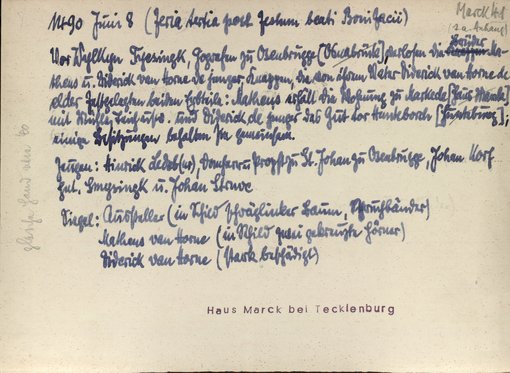 1490 Juni 8 (feria tertia post festum beati Bonifacii)
Marck Urk
(s.a. Anhang)
Vor Wylken Fysesingk, Gografen zu Osenbrugge [Osnabrück], verlosen die Brüder Ma-
theus u. Diderick van Horne de junger Knappen, die von ihrem Vater Diderick van Horne de
elder festgelegten beiden Erbteile: Matheus erhält die Wohnung zu Markede [Haus Marck]
mit Mühle, Teich usw. und Diderick de junger das Gut tor Hankeborch [Hünkeburg];
einige Besitzungen behalten sie gemeinsam.
Zeugen: Hinrick Ledeb(ur), Domherr u. Propst zu St. Johan zu Osenbrugge, Johan Korf
gnt. Smysingk u. Johan Struve
Siegel: Aussteller (im Schild schräglinker Baum, Spruchbänder)
Matheus van Horne (im Schild zwei gekreuzte Hörner)
Diderick van Horne (stark beschädigt)
gleiche Hand wie 80
Haus Marck bei Tecklenburg